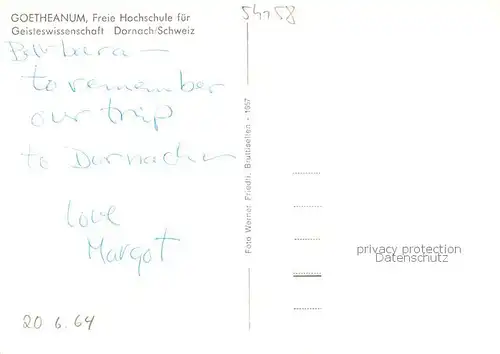 GOETHEANUM, Freie Hochschule für
Geisteswissenschaft Dornach/Schweiz
54758
Barbara —
to remember
our trip
to Dornach
love
Margot
20 6.64
Foto Werner Friedli, Brüttisellen - 1957
privacy protection
Datenschutz